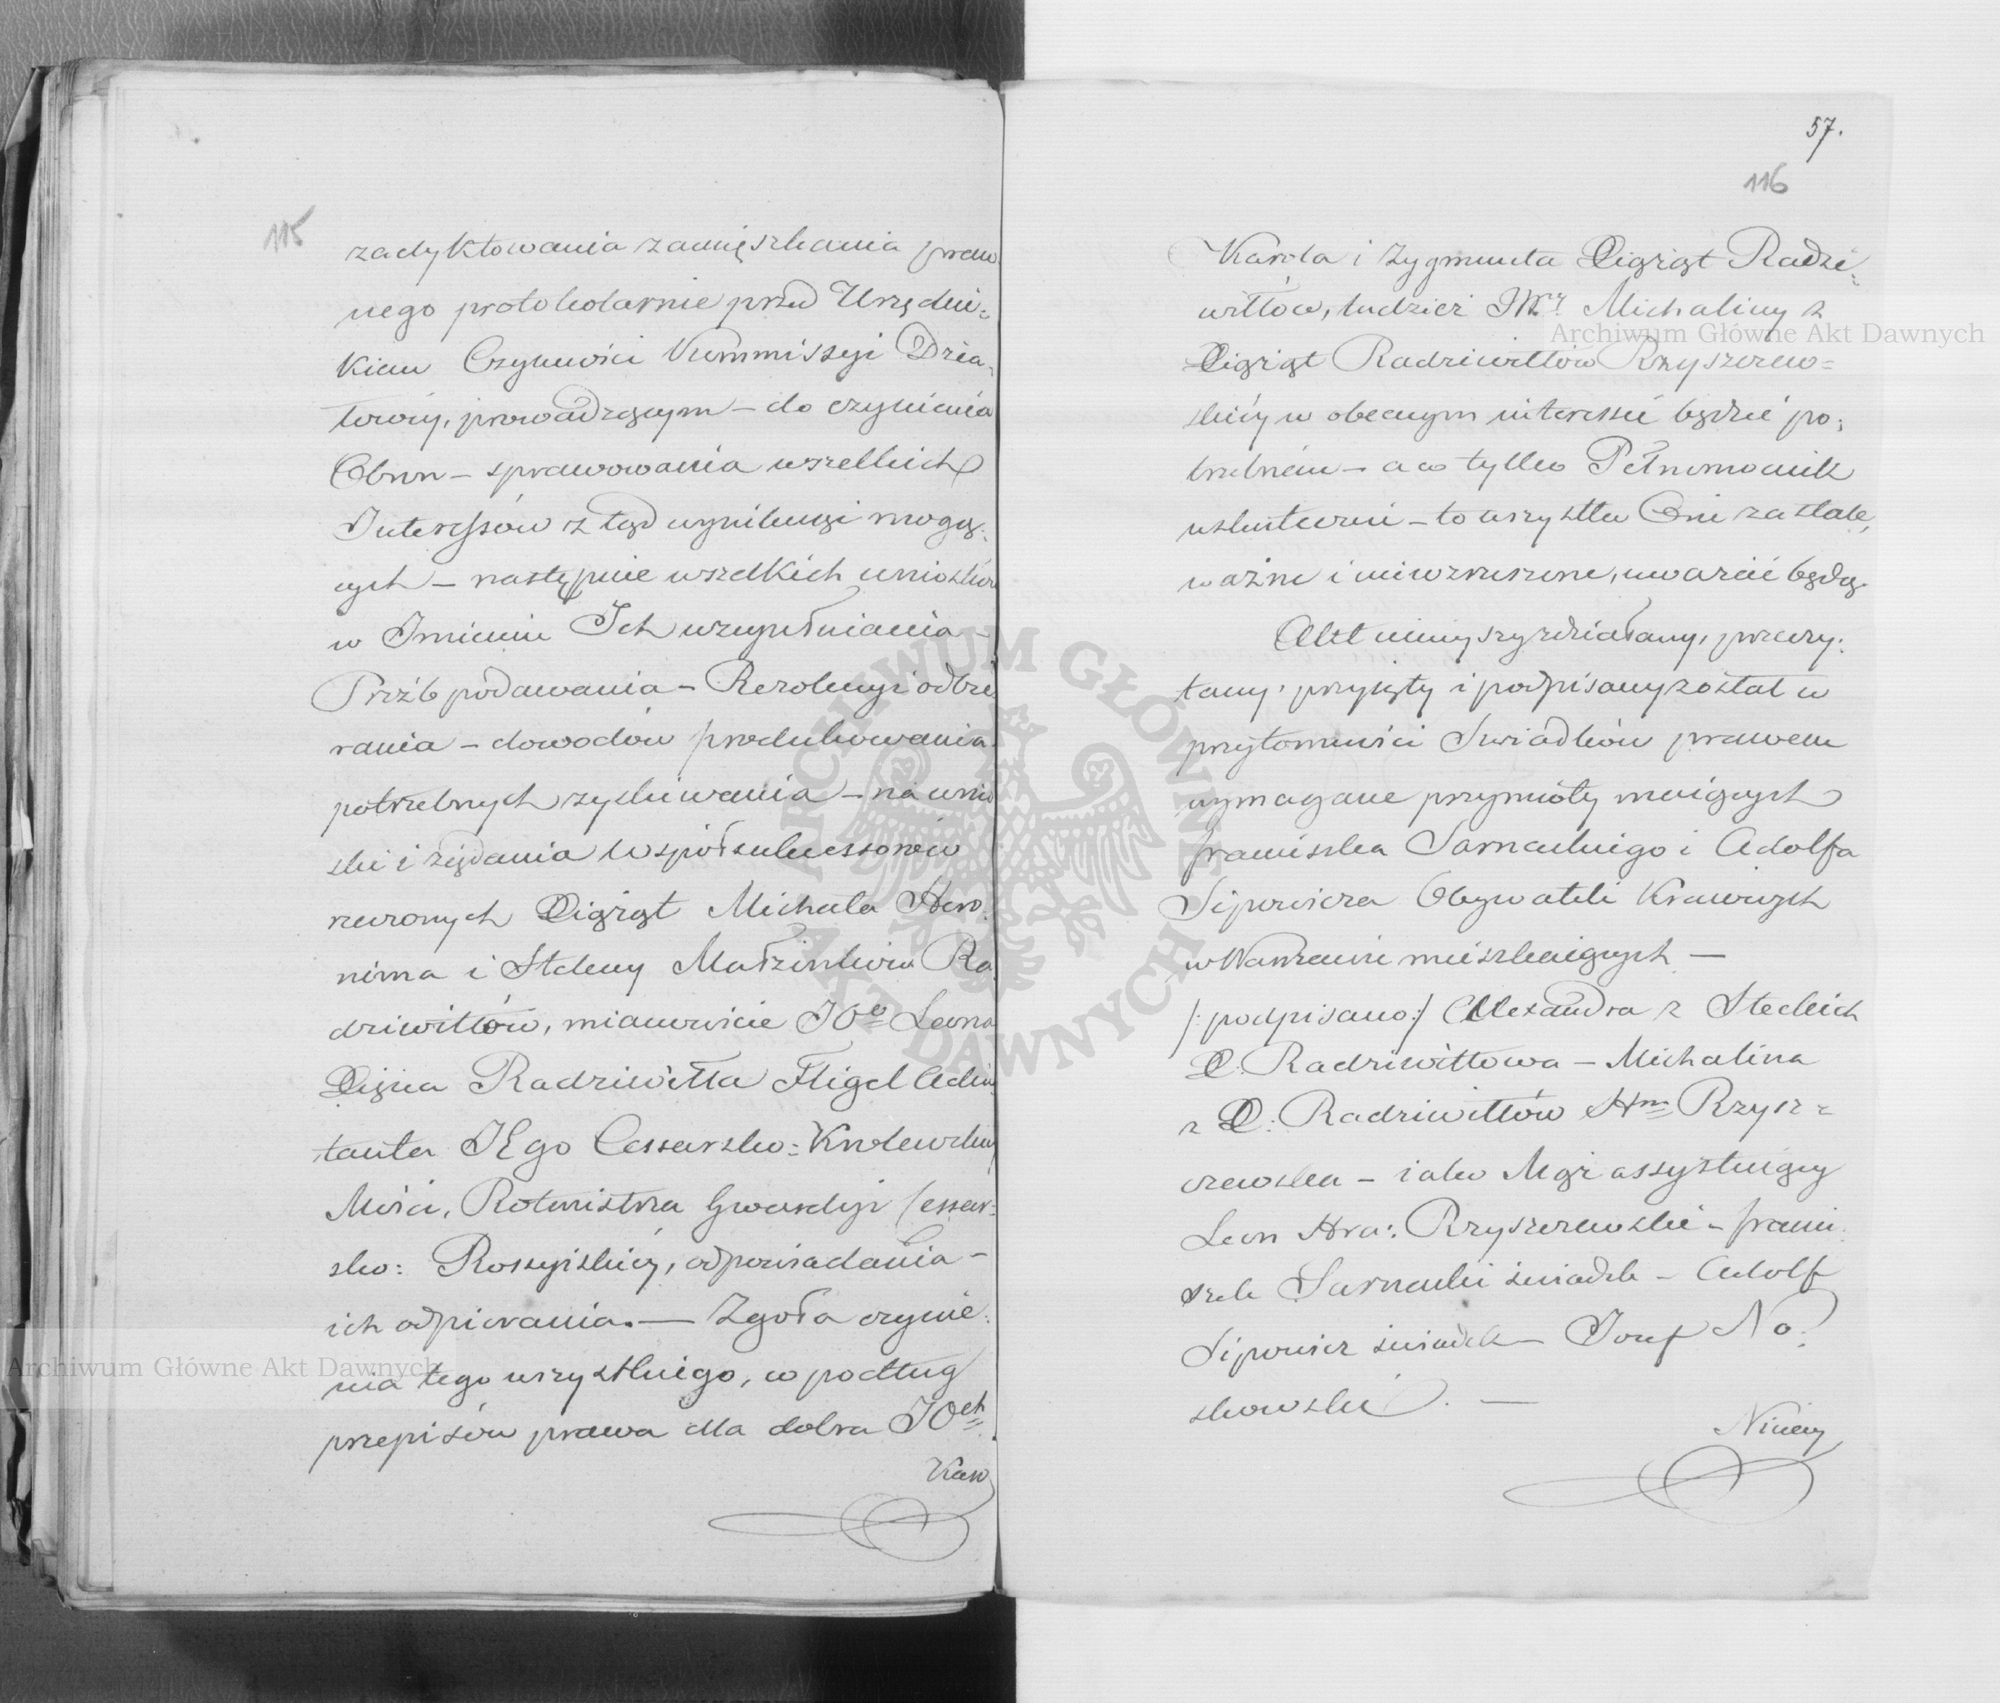 115
zadyktowania zamięszkania praw
nego protokolarnie przed Urzędni=
kiem Czynności Kommissyi Dzia=
łowéy, prowadzącym – do czynienia
Obron – sprawowania wszelkich
Interessów z tąd wyniknąć mogą=
cych – następnie wszelkich wniosków
w Imieniu Ich uzupełniania –
Próźb podawania – Rezolucyi odbie
rania – dowodów produkowania
potrzebnych zyskiwania – na wnio
ski i żądania Współsukcessorów
rzeczonych Xiążąt Michała Hero=
nima i Heleny Małżonków Ra
dziwiłłów, mianowicie JOo Leona
Xięcia Radziwiłła Fligel Adiu
tanta JEgo Cessarsko=Królewskiej
Mości, Rotmistrza Gwardyi Cessar=
sko: Rossyiskiéy, odpowiadania –
ich odpierania. — Zgoła czynie=
nia tego wszystkiego, co podług
przepisów prawa dla dobra JOch
Karo
57.
116
Karola i Zygmunta Xiążąt Radzi=
wiłłów, tudzież JWéy Michaliny z
Xiążąt Radziwiłłów Rzyszczew=
skiéy w obecnym interessie będzie po=
trzebném – a co tylko Pełnomocnik
uskuteczni – to wszystko Oni za stałe,
ważne i niewzruszone, uważać będą.
Akt niniejszy zdziałany, przeczy=
tany, przyięty i podpisany został w
przytomności Swiadków prawem
wymagane przymioty maiących
Franciszka Sarnackiego i Adolfa
Sipowicza Obywateli Krawców
w Warszawie mieszkaiących —
/: podpisano :/ Alexandra z Steckich
X. Radziwiłłowa – Michalina
z X. Radziwiłłów Hna Rzysz=
czewska – i ako Mąż assystuiący
Leon Hra: Rzyszczewski – Franci=
szek Sarnacki świadek – Adolf
Sipowicz świadek – Jozef No=
skowski. —
Niniey
Archiwum Główne Akt Dawnych
Archiwum Główne Akt Dawnych
ARCHIWUM GŁÓWNE
AKT DAWNYCH